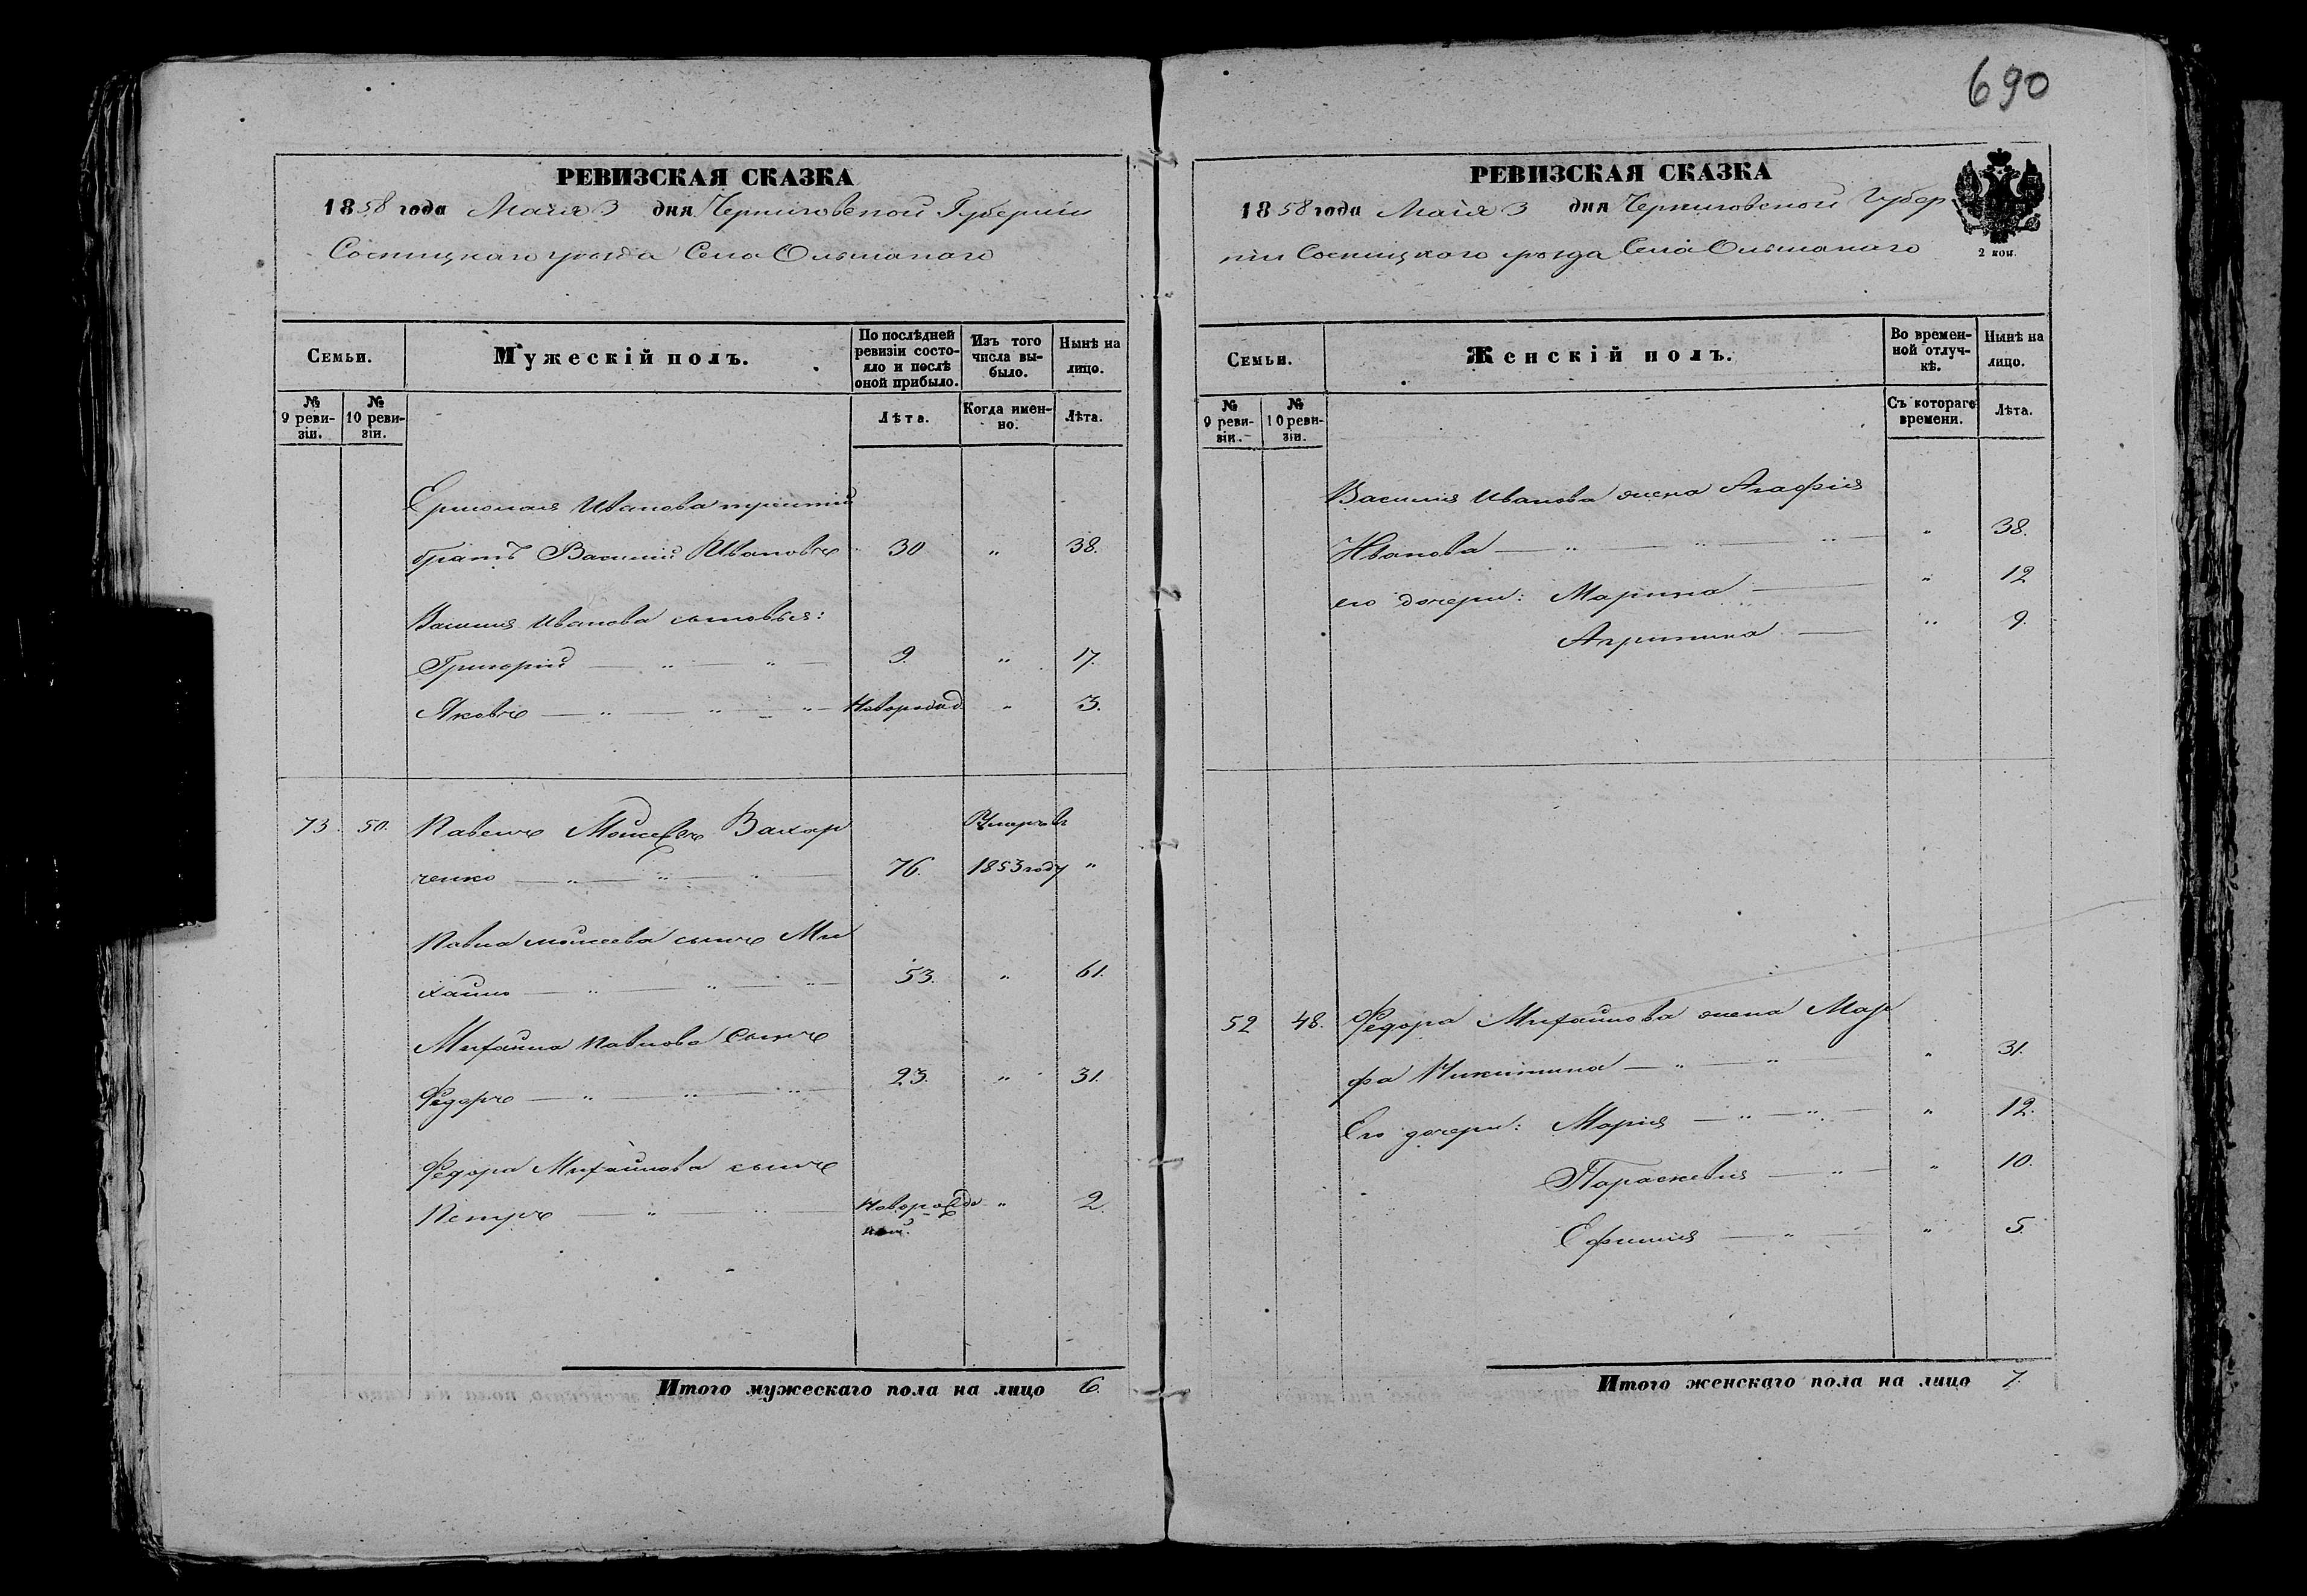 690
РЕВИЗСКАЯ СКАЗКА
1858 года Мая 3 дня Черниговской Губерніи
Сосницкаго уѣзда Села Ольшанаго
Семьи.
Мужескій полъ.
По послѣдней ревизіи состояло и послѣ оной прибыло.
Изъ того числа выбыло.
Нынѣ на лицо.
№ 9 ревизіи.
№ 10 ревизіи.
Лѣта.
Когда именно.
Лѣта.
Ермолая Иванова третій
братъ Василій Ивановъ 30 " 38.
Василия Иванова сыновья:
Григорій 9. " 17.
Яковъ Новорожд. " 3.
73. 50. Павелъ Моисеевъ Захар Умеръ въ
ченко 76. 1853 году "
Павла Моисеева сынъ Ми
хайло 53. " 61.
Михаила Павлова Сынъ
Федоръ 23. " 31.
Федора Михайлова сынъ
Петръ Новорожде " 2.
ный.
Итого мужескаго пола на лицо 6.
РЕВИЗСКАЯ СКАЗКА
1858 года Мая 3 дня Черниговской Губер
ніи Сосницкого уѣзда Села Ольшанаго
2 коп.
Семьи.
Женскій полъ.
Во временной отлучкѣ.
Нынѣ на лицо.
№ 9 ревизіи.
№ 10 ревизіи.
Съ котораго времени.
Лѣта.
Василия Иванова жена Агафія
Иванова " 38.
его дочери: Марина " 12
Агрипина " 9.
52 48. Федора Михайлова жена Мар
фа Никитина " 31.
Его дочери: Марія " 12.
Параскевія " 10.
Ефимія " 5.
Итого женскаго пола на лицо 7.